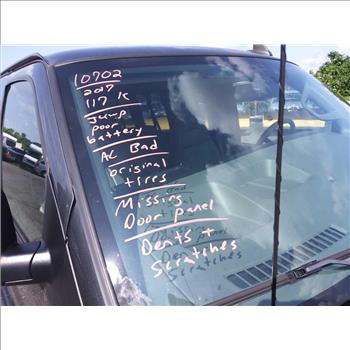 10702
2017
117 K
Jump
poor
battery
AC Bad
original
tires
Missing
Door panel
Dents +
Scratches